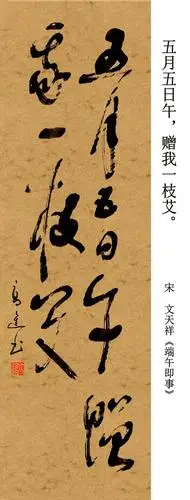 五月五日午，赠我一枝艾。
宋　文天祥《端午即事》
五月五日午贈
我一枝艾